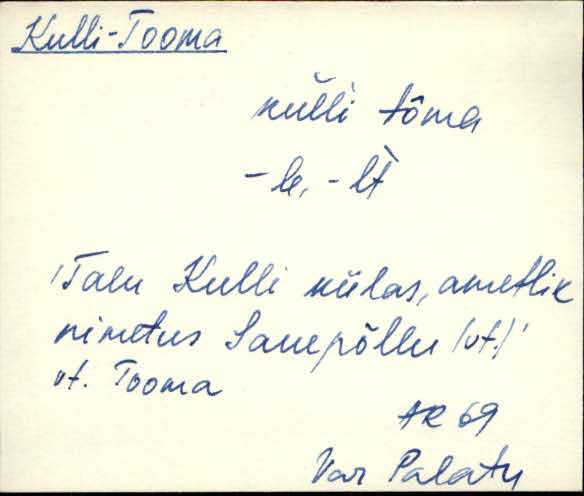 Kulli-Tooma
kul̆l̀i tôma
-le, -lt̀
'Talu Kulli külas, ametlik
nimetus Sauepõllu (vt.)'
vt. Tooma
AR 69
Var Palatu